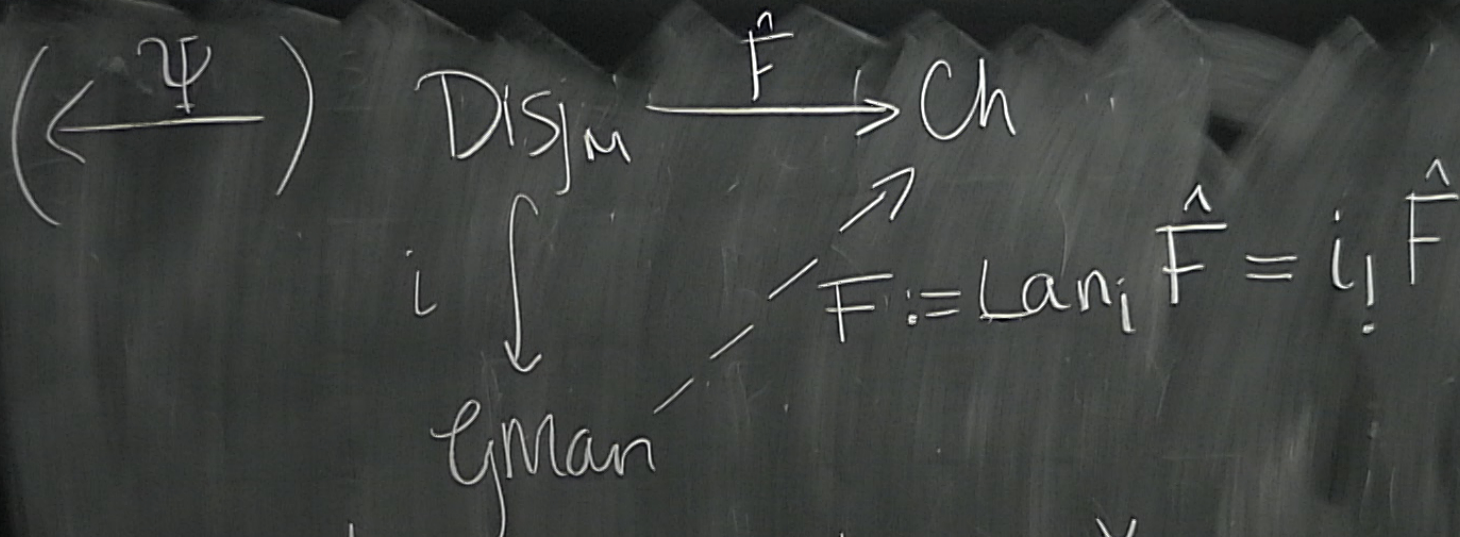 (← Ψ) Disj_M → F̂ Ch
i ↪ F := Lan_i F̂ = i_! F̂
GMan